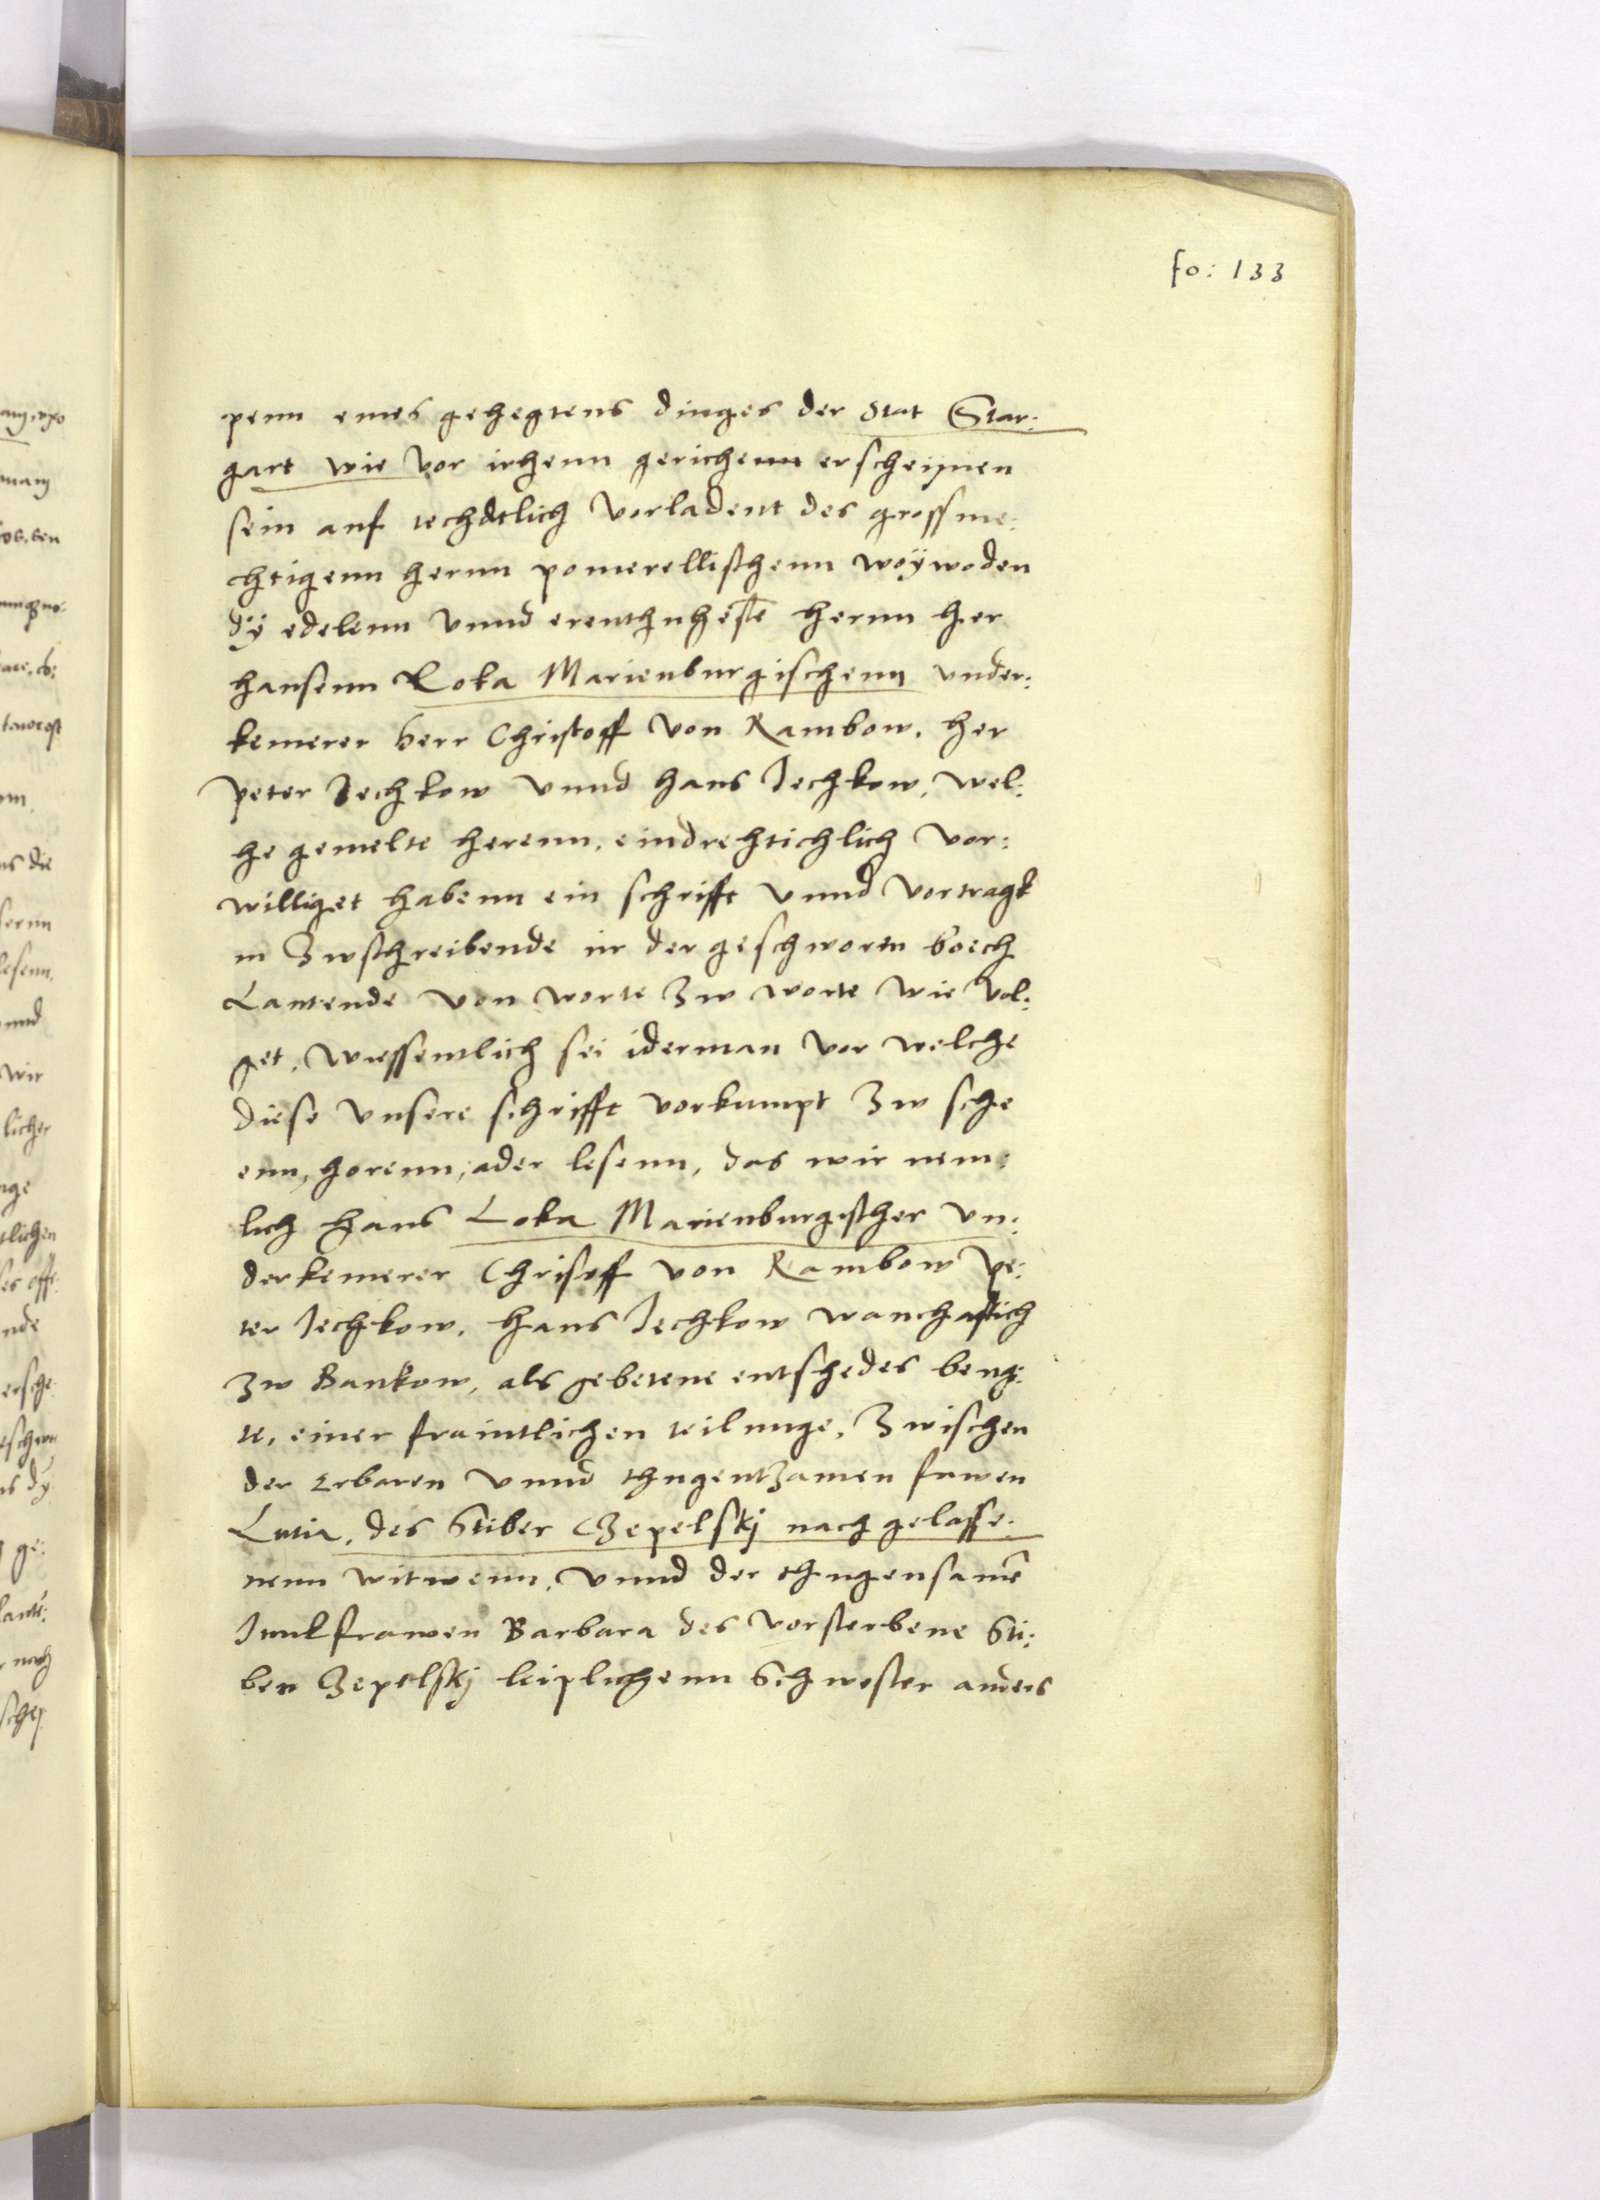 fo: 133
penn eines gehegtens dinges der stat Star:
gart wie vor irhenn gerichenn erscheinen
sein auf rechdtlich vorladent des grossme:
chtigenn hernn pomerellischenn woÿwoden
dÿ edelenn vnnd erenthuheste hernn her
hansenn Loka Marienburgischenn vnder:
kemerer herr Christoff von Rambow, her
peter Jechkow vnnd hans Jechkow, wel:
he gemelte herenn, eindrechtichlich vor:
williget habenn ein schrifft vnnd vortragk
in zwschreibende in der geschworen boech
Lautende von worte zw worte wie vol:
get, wuessentlich sei iderman vor welche
diese vnsere schrifft vorkumpt zw sehe
enn, horenn, ader lesenn, das wir nem:
lich hans Loka Marienburgischer vn:
derkemerer Chrisoff von Rambow pe:
ter Jechkow, hans Jechkow wanhafftich
zw Bankow, als gebetene entschedes
te, einer fraintlichen teilunge, zwischen
der erbaren vnnd thugentzamen fuwen
Lutia, des Stiber Czepelskj nach gelasse:
nenn witwenn, vnnd der thugensamē
Junkfrawen Barbara des vorsterbene Sti:
ben Czepelskj leiplichenn Schwester anders